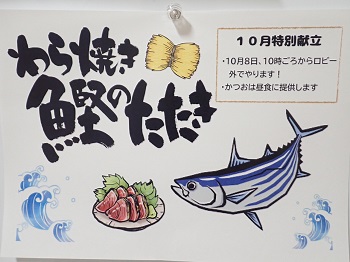 わら焼き
鰹のたたき
１０月特別献立
・10月8日、10時ごろからロビー
外でやります！
・かつおは昼食に提供します